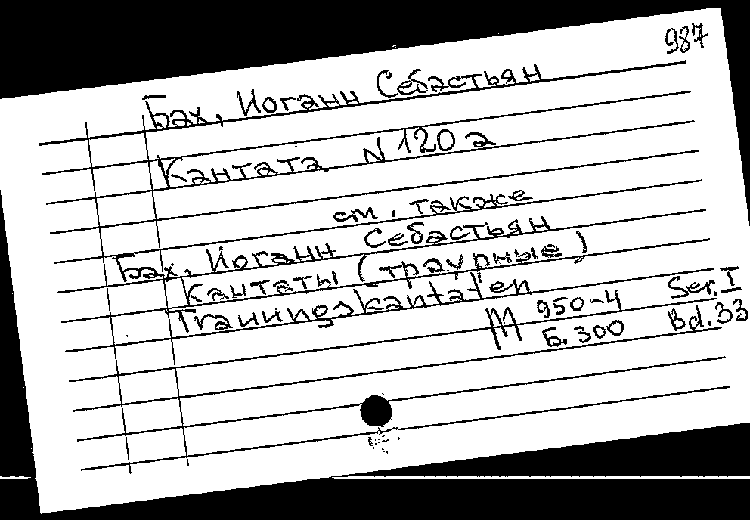 987
Бах, Иоганн Себастьян
Кантата N 120 а
см. также
Бах, Иоганн Себастьян
Кантаты (траурные)
Trauungskantaten
М 950-4 Ser. I
Б. 300 Bd. 33